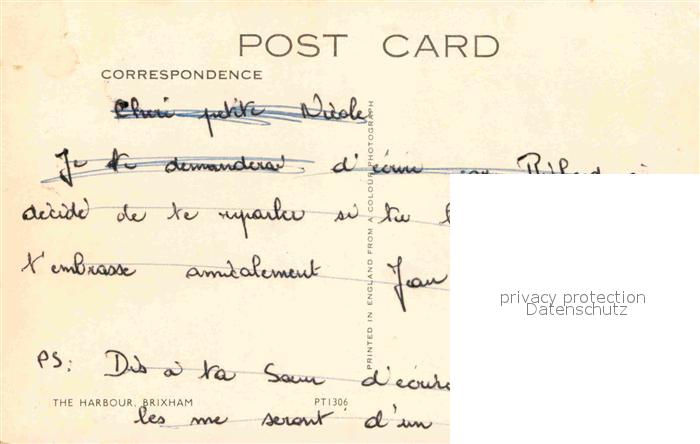 POST CARD
CORRESPONDENCE
petite Nicole
Je te demanderai d'écrire
décidé de te reparler si tu
t'embrasse amicalement Jean
PS: Dis à ta Sœur d'écrire
les me seront d'un
THE HARBOUR, BRIXHAM PT1306
PRINTED IN ENGLAND FROM A COLOUR PHOTOGRAPH
privacy protection
Datenschutz